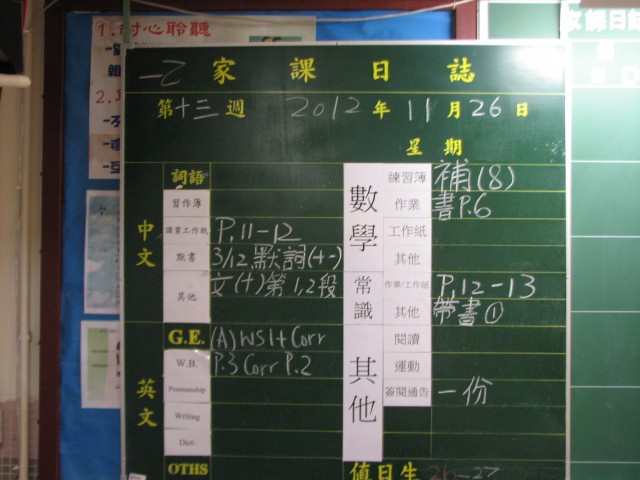 1.耐心聆聽
2.
一乙 家課日誌
第十三週 2012年11月26日
星期
中文
詞語
習作簿
課業工作紙 P.11-12
默書 3/12 默詞(十一)
其他 文(十)第1,2段
英文
G.E. (A) WS 1+Corr
W.B. P.3 Corr P.2
Penmanship
Writing
Dict.
OTHS
數學
練習簿 補(8)
作業 書P.6
工作紙
其他
常識
作業/工作紙 P.12-13
其他 帶書①
其他
閱讀
運動
簽閱通告 一份
值日生 26-27
家課日